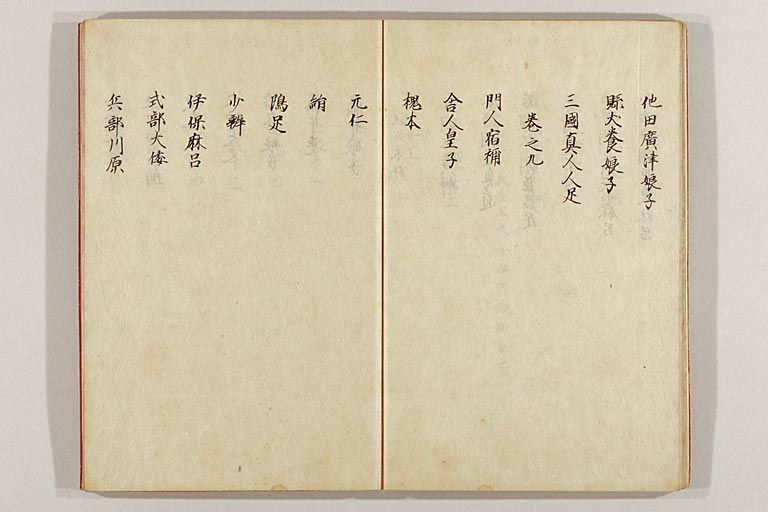 他田廣津娘子
縣犬養娘子
三國真人人足
巻之九
門人宿祢
舎人皇子
槐本
元仁
絹
嶋足
少辨
伊保麻呂
式部大倭
兵部川原